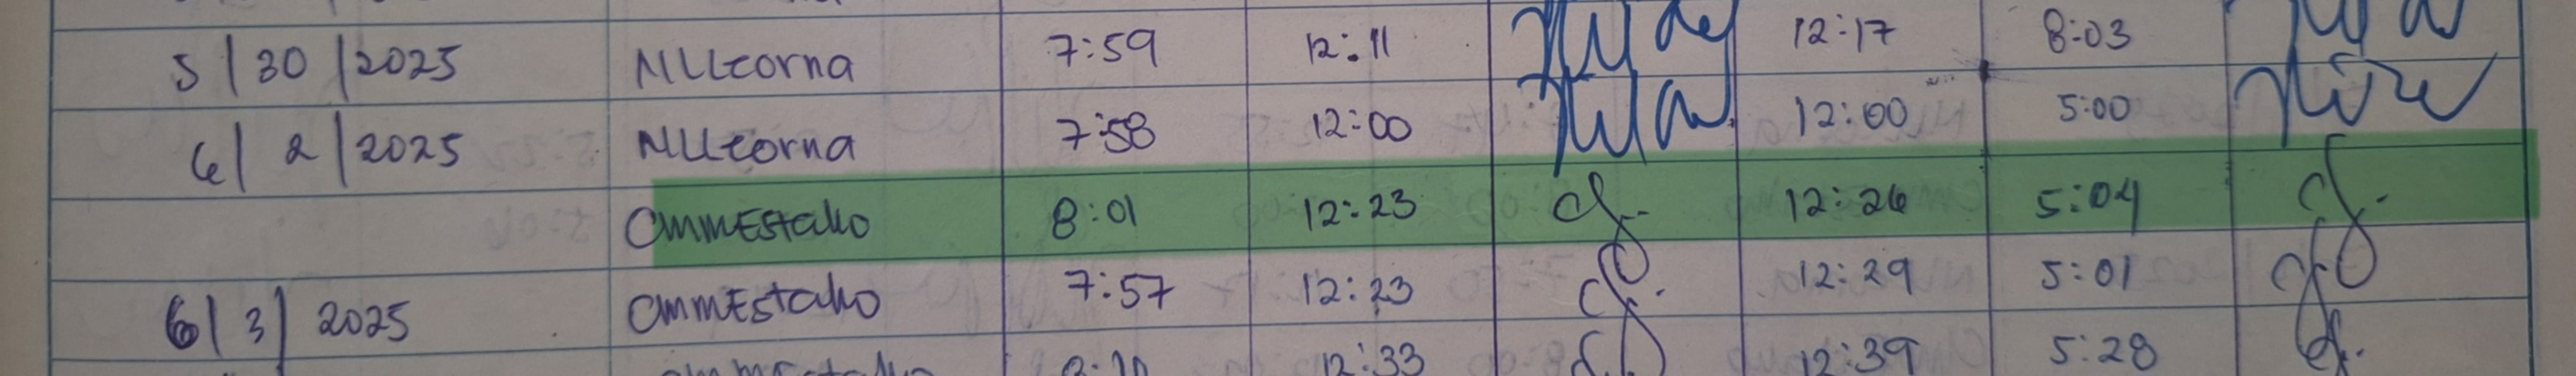 5/30/2025 NLLcorna 7:59 12:11 12:17 8:03
6/2/2025 NLLcorna 7:58 12:00 12:00 5:00
OmmEstallo 8:01 12:23 cf. 12:26 5:04 cf.
6/3/2025 OmmEstallo 7:57 12:23 cf. 12:29 5:01
12:33 12:39 5:28